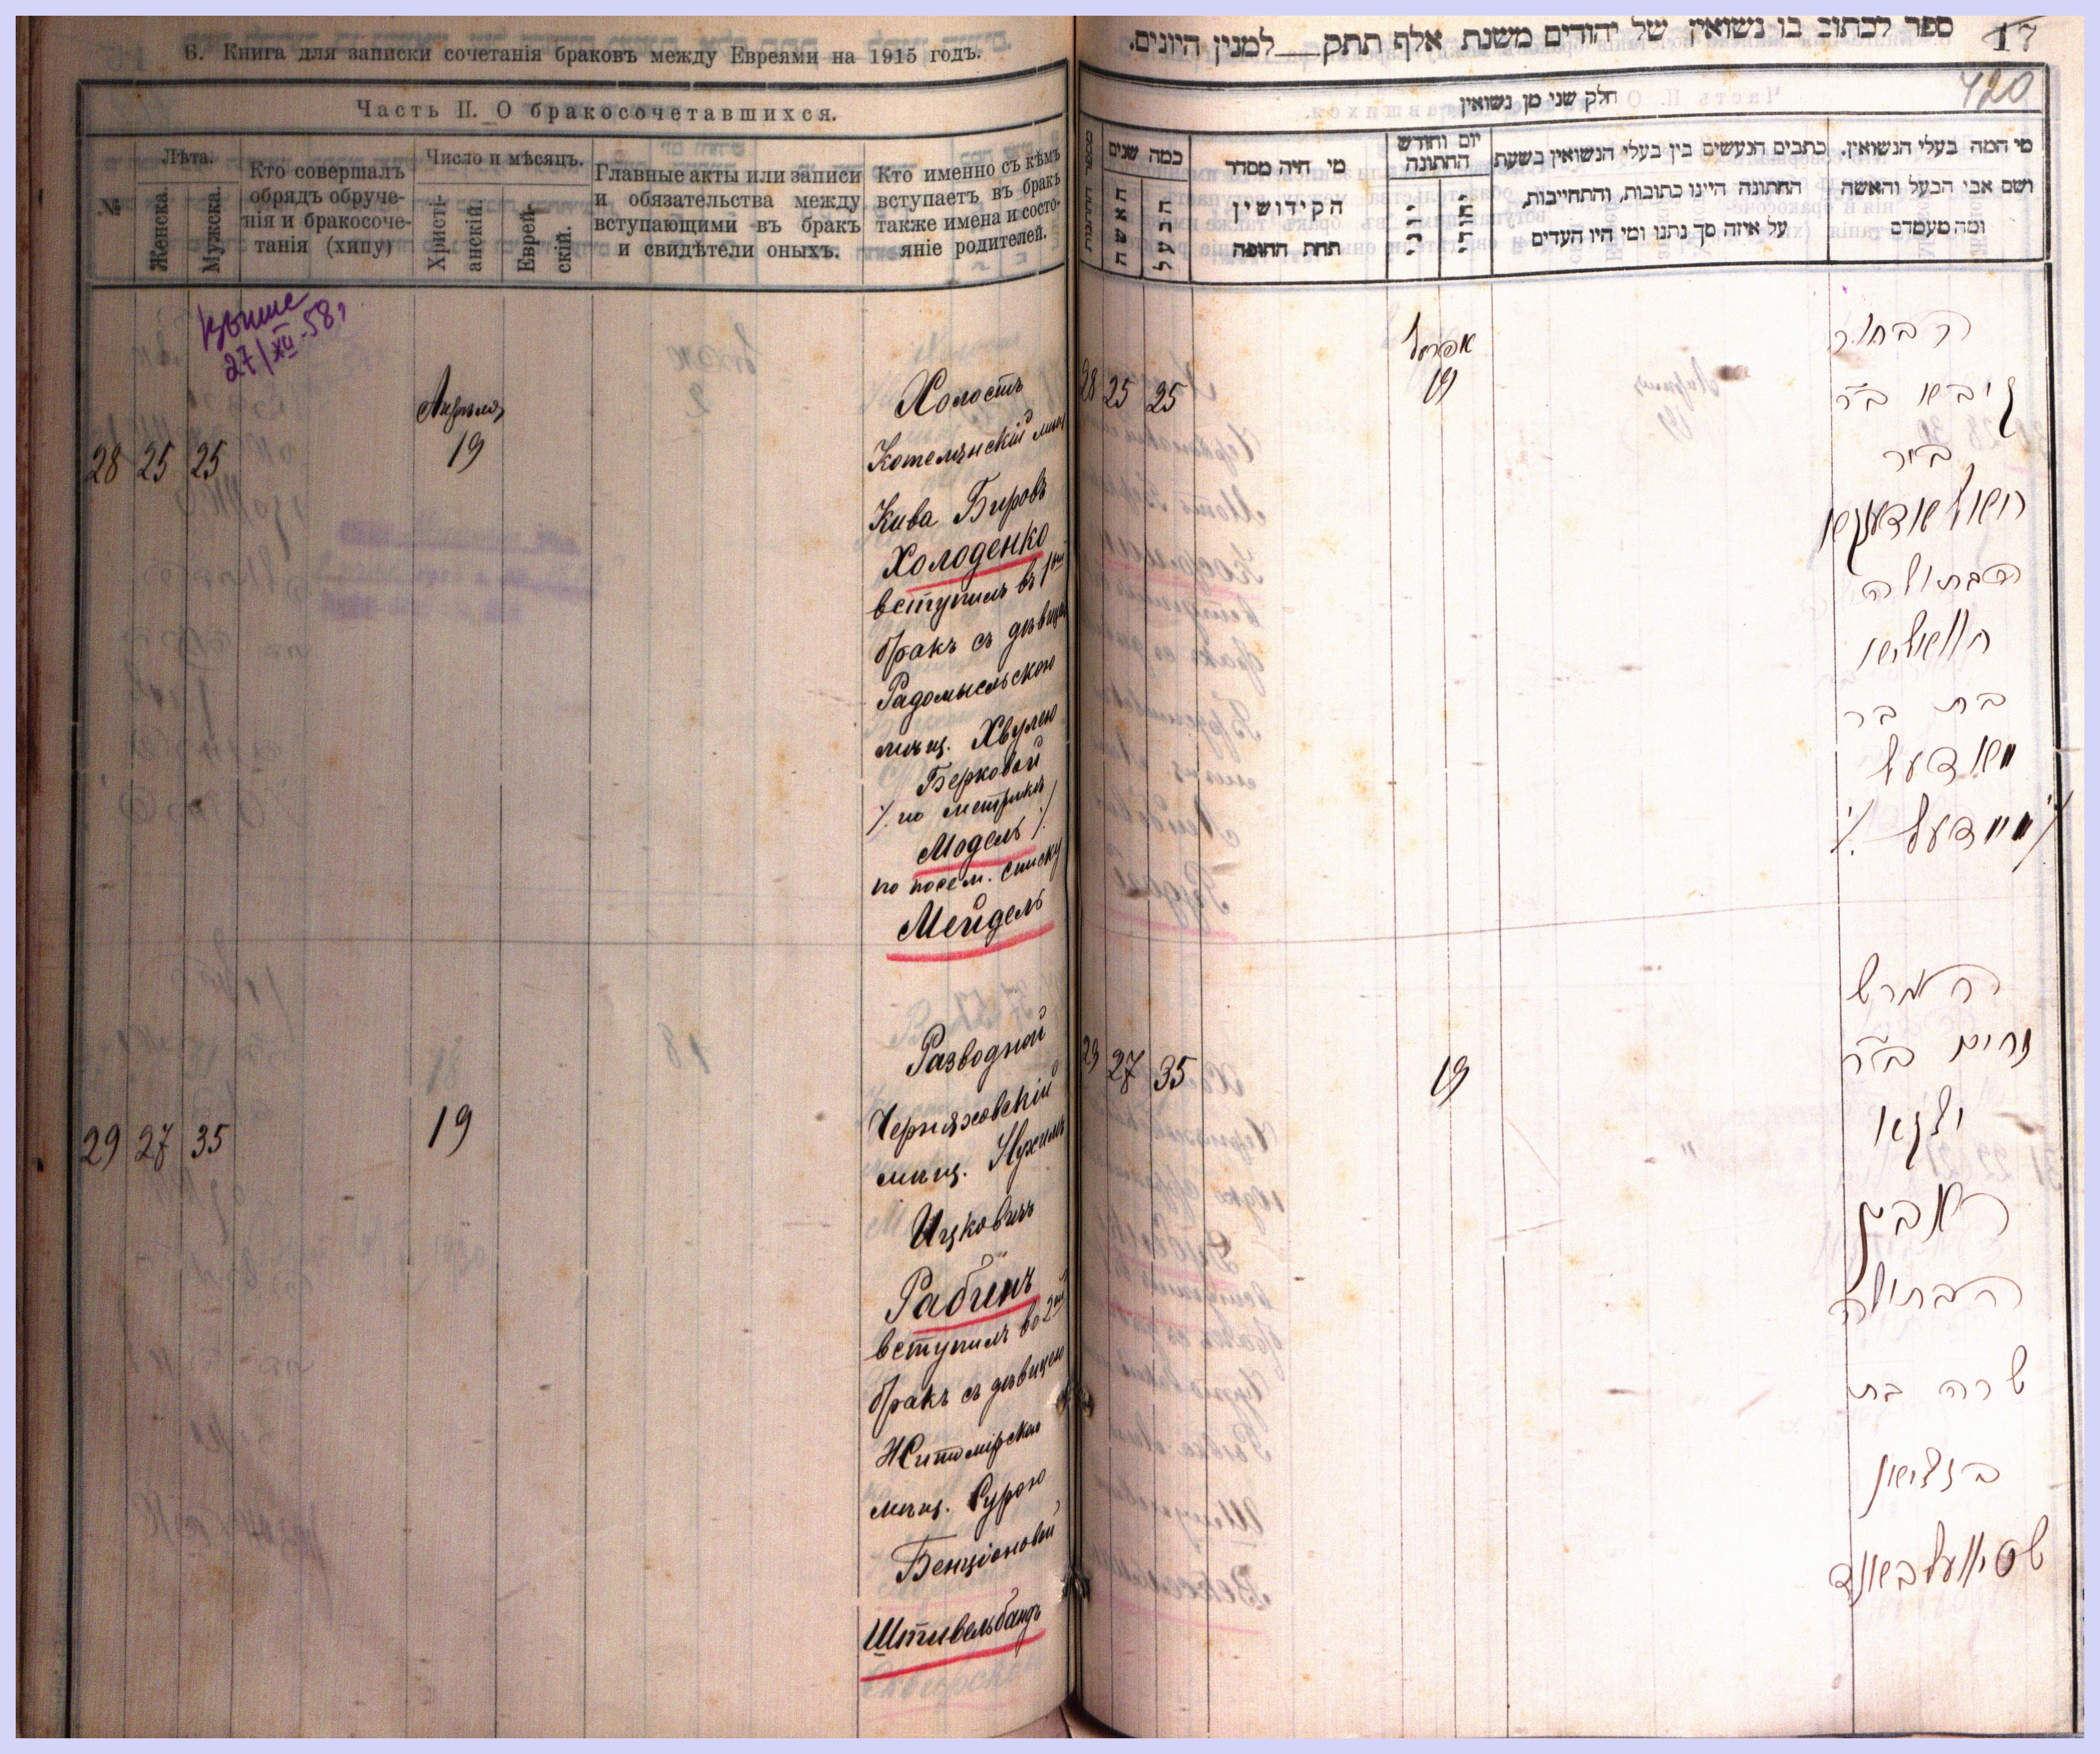 Б. Книга для записки сочетанія браковъ между Евреями на 1915 годъ.
Часть II. О бракосочетавшихся.
№
Лѣта.
Женска.
Мужска.
Кто совершалъ
обрядъ обруче-
нія и бракосоче-
танія (хипу)
Число и мѣсяцъ.
Христі-
анскій.
Еврей-
скій.
Главные акты или записи
и обязательства между
вступающими въ бракъ
и свидѣтели оныхъ.
Кто именно съ кѣмъ
вступаетъ въ бракъ
также имена и состо-
яніе родителей.
27/XII-58,
28 25 25
Апрѣля
19
Холостъ
Котелянскій мѣщ
Кива Бировъ
Холоденко
вступилъ въ 1ый
бракъ съ дѣвицею
Радомысльскою
мѣщ. Хвулею
Берковой
/. по метрикѣ
Модель ./
по посем. списку
Мейдель
29 27 35
19
Разводной
Черняховскій
мѣщ. Нухимъ
Ицковичъ
Рабинъ
вступилъ во 2ой
бракъ съ дѣвицею
Житомірскою
мѣщ. Сурою
Бенціоновой
Штивельбандъ
ספר לכתוב בו נשואין של יהודים משנת אלף תתק ___ למנין היונים.
17
420
חלק שני מן נשואין
מי המה בעלי הנשואין.
ושם אבי הבעל והאשה
ומה מעמדם
כתבים הנעשים בין בעלי הנשואין בשעת
החתונה היינו כתובות, והתחייבות,
על איזה סך נתנו ומי היו העדים
יום וחודש
החתונה
יהודי
יוני
מי היה מסדר
הקידושין
תחת החופה
כמה שנים
הבעל
האשה
28 25 25
אפריל
19
הבחור
קיבא ב״ר
ביר
חאלאדענקא
הבתולה
חוואליא
בת בר
מאדעל
/. מיידעל ./
29 27 35
19
הגרש
נחים ב״ר
יצקא
ראבין
הבתולה
שרה בת
בנציאן
שטיוועלבאנד